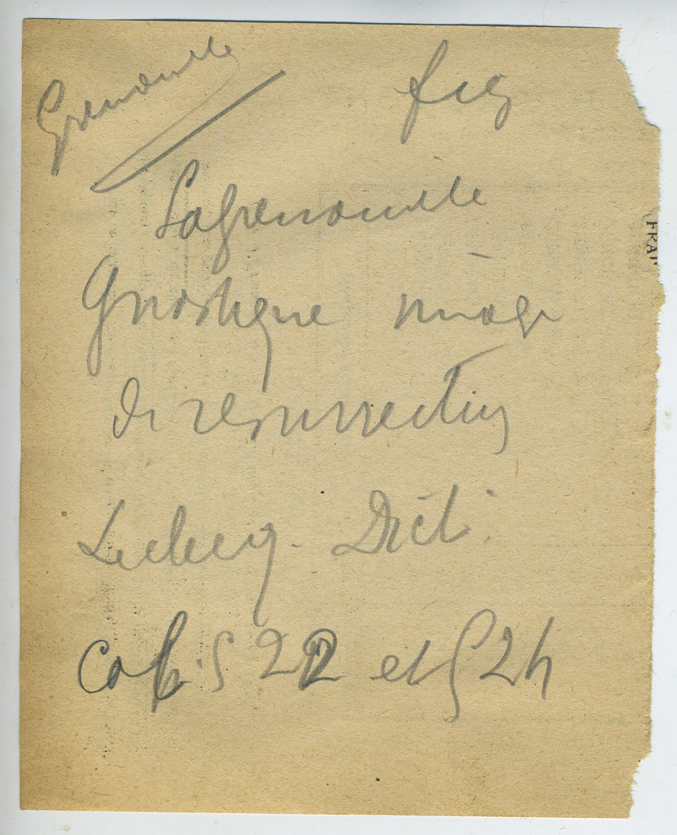 Grenouille fig
La grenouille
Gnostique image
de résurrection
Leclercq. Dict.
522 et 524
FRA